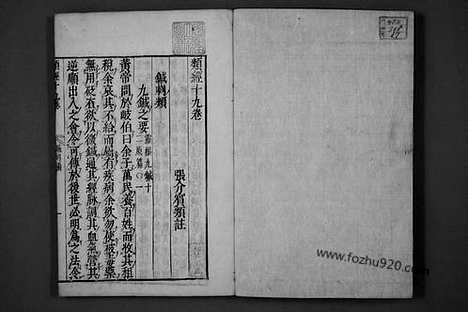 類經十九卷
張介賔類註
鍼刺類
九鍼之要
靈樞九鍼十
二原篇〇一
黃帝問於岐伯曰余子萬民養百姓而收其租
稅余哀其不給而屬有疾病余欲勿使被毒藥
無用砭石欲以微鍼通其經脉調其血氣營其
逆順出入之會令可傳於後世必明爲之法令
www.fozhu920.com